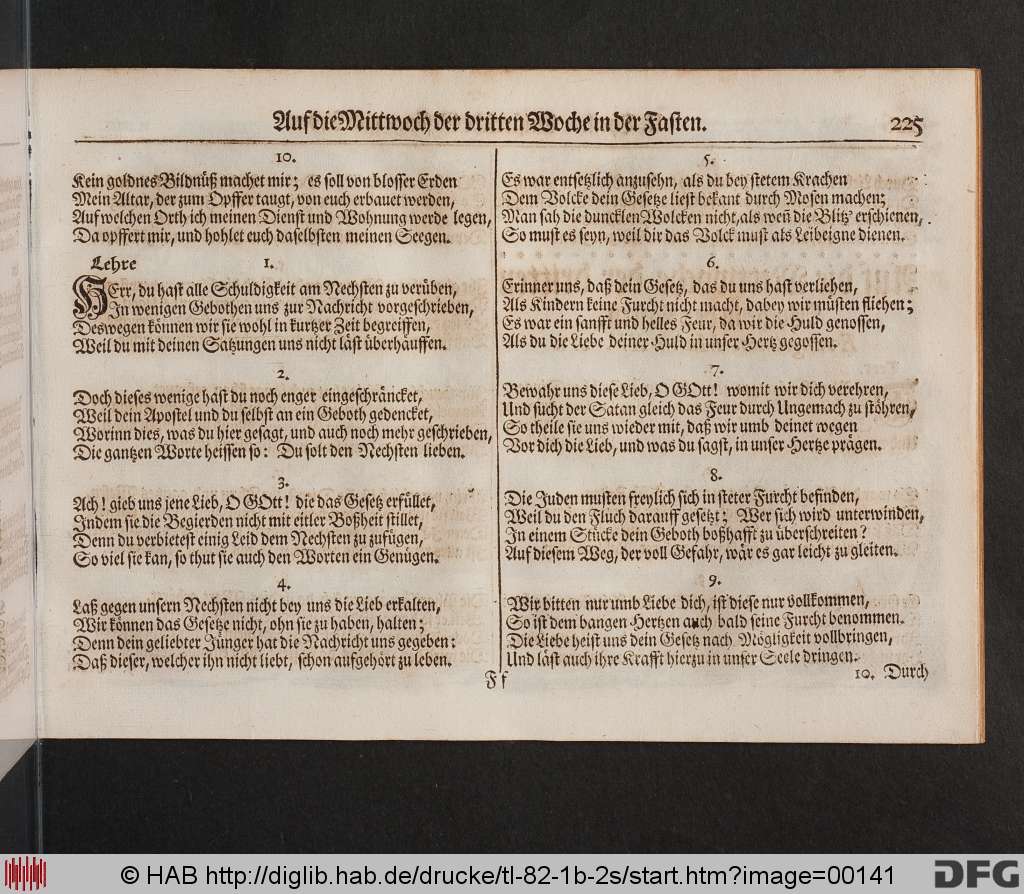 Auf die Mittwoch der dritten Woche in der Fasten. 225
10.
Kein goldnes Bildnüß machet mir; es soll von blosser Erden
Mein Altar, der zum Opffer taugt, von euch erbauet werden,
Auf welchen Orth ich meinen Dienst und Wohnung werde legen,
Da opffert mir, und hohlet euch daselbsten meinen Seegen.
Lehre 1.
HErr, du hast alle Schuldigkeit am Nechsten zu verüben,
In wenigen Gebothen uns zur Nachricht vorgeschrieben,
Deswegen können wir sie wohl in kurtzer Zeit begreiffen,
Weil du mit deinen Satzungen uns nicht läst überhäuffen.
2.
Doch dieses wenige hast du noch enger eingeschräncket,
Weil dein Apostel und du selbst an ein Geboth gedencket,
Worinn dies, was du hier gesagt, und auch noch mehr geschrieben,
Die gantzen Worte heissen so: Du solt den Nechsten lieben.
3.
Ach! gieb uns jene Lieb, O GOtt! die das Gesetz erfüllet,
Indem sie die Begierden nicht mit eitler Boßheit stillet,
Denn du verbietest einig Leid dem Nechsten zu zufügen,
So viel sie kan, so thut sie auch den Worten ein Genügen.
4.
Laß gegen unsern Nechsten nicht bey uns die Lieb erkalten,
Wir können das Gesetze nicht, ohn sie zu haben, halten;
Denn dein geliebter Jünger hat die Nachricht uns gegeben:
Daß dieser, welcher ihn nicht liebt, schon aufgehört zu leben.
5.
Es war entsetzlich anzusehn, als du bey stetem Krachen
Dem Volcke dein Gesetze liest bekant durch Mosen machen;
Man sah die duncklen Wolcken nicht, als weñ die Blitz' erschienen,
So must es seyn, weil dir das Volck must als Leibeigne dienen.
6.
Erinner uns, daß dein Gesetz, das du uns hast verliehen,
Als Kindern keine Furcht nicht macht, dabey wir müsten fliehen;
Es war ein sanfft und helles Feur, da wir die Huld genossen,
Als du die Liebe deiner Huld in unser Hertz gegossen.
7.
Bewahr uns diese Lieb, O GOtt! womit wir dich verehren,
Und sucht der Satan gleich das Feur durch Ungemach zu stöhren,
So theile sie uns wieder mit, daß wir umb deinet wegen
Vor dich die Lieb, und was du sagst, in unser Hertze prägen.
8.
Die Juden musten freylich sich in steter Furcht befinden,
Weil du den Fluch darauff gesetzt; Wer sich wird unterwinden,
In einem Stücke dein Geboth boßhafft zu überschreiten?
Auf diesem Weg, der voll Gefahr, wär es gar leicht zu gleiten.
9.
Wir bitten nur umb Liebe dich, ist diese nur vollkommen,
So ist dem bangen Hertzen auch bald seine Furcht benommen.
Die Liebe heist uns dein Gesetz nach Mögligkeit vollbringen,
Und läst auch ihre Krafft hierzu in unser Seele dringen.
F f
10. Durch
© HAB http://diglib.hab.de/drucke/tl-82-1b-2s/start.htm?image=00141
DFG